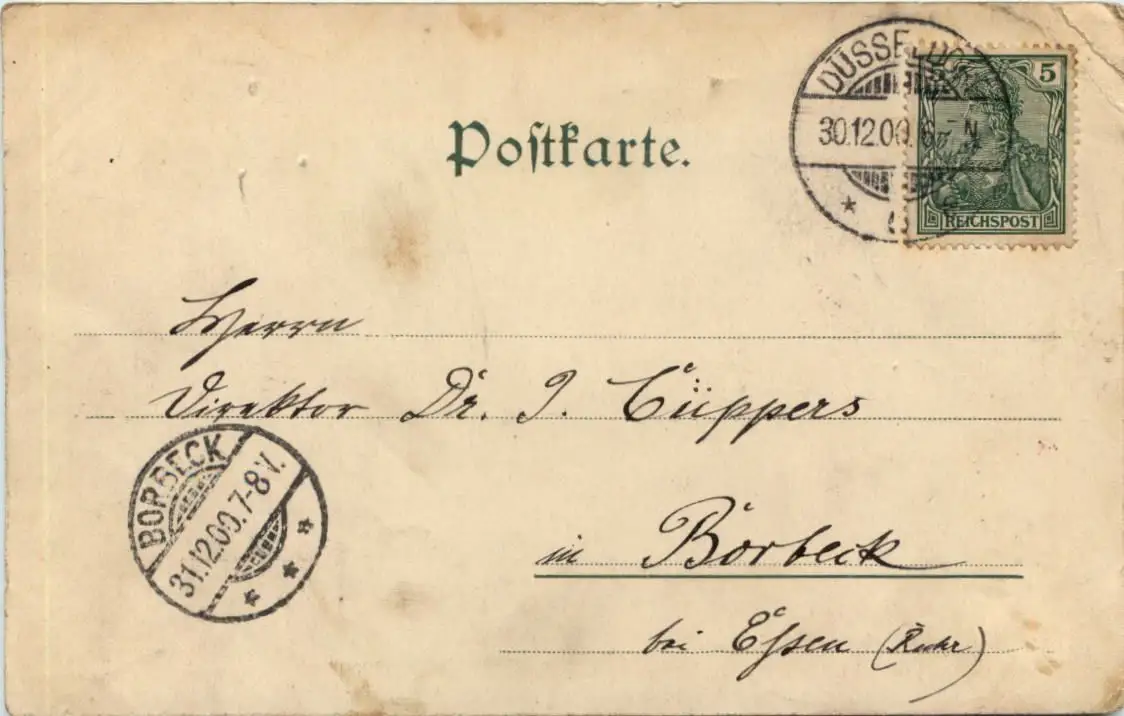 Postkarte.
DÜSSELDO
30.12.00. 6 - N
5
REICHSPOST
Herrn
Direktor Dr. J. Cüppers
BORBECK
31.12.00.7-8V.
in Borbeck
bei Essen (Ruhr)